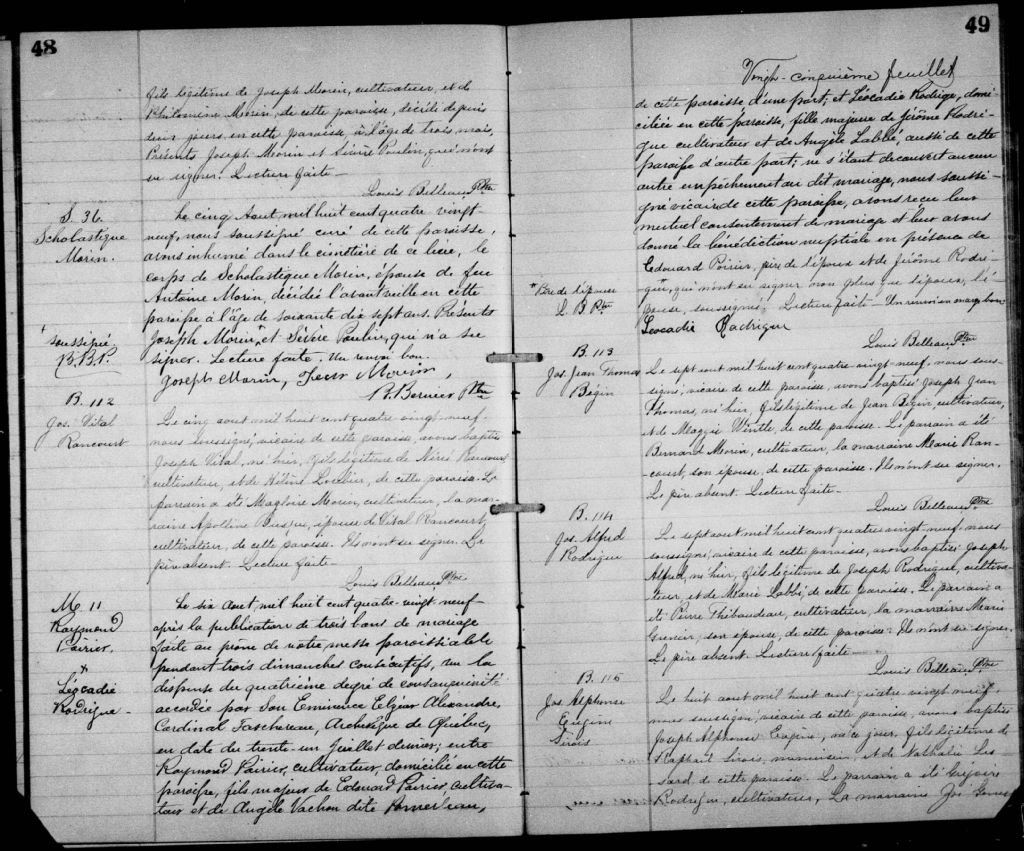 48
fils légitime de Joseph Morin, cultivateur, et de
Philomène Morin, de cette paroisse, décédé depuis
deux jours en cette paroisse, à l'âge de trois mois.
Présents Joseph Morin et Sévère Poulin, qui n'ont
su signer. Lecture faite —
Louis Belleau Ptre
S. 36
Scholastique
Morin.
Le cinq Aout mil huit cent quatre vingt-
neuf, nous soussigné curé de cette paroisse,
avons inhumé dans le cimetière de ce lieu, le
corps de Scholastique Morin, épouse de feu
Antoine Morin, décédée l'avant veille en cette
paroisse à l'âge de soixante dix sept ans. Présents
Joseph Morin, et Sévère Poulin, qui n'a su
signer. Lecture faite. Un renvoi bon.
soussigné
B.B.P.
Joseph Morin,
B. Bernier Ptre
B. 112
Jos. Vital
Rancourt
Le cinq aout mil huit cent quatre vingt-neuf
nous soussigné, vicaire de cette paroisse, avons baptisé
Joseph Vital, né hier, fils légitime de Néré Rancourt
cultivateur, et de Hélène Loubier, de cette paroisse. Le
parrain a été Magloire Morin, cultivateur, la mar-
raine Apolline Busque, épouse de Vital Rancourt,
cultivateur, de cette paroisse. Ils n'ont su signer. Le
père absent. Lecture faite
Louis Belleau Ptre
M. 11
Raymond
Poirier.
&
Léocadie
Rodrigue —
Le six Aout, mil huit cent quatre-vingt neuf
après la publication de trois bans de mariage
faite au prône de notre messe paroissiale
pendant trois dimanches consécutifs, vu la
dispense du quatrième degré de consanguinité
accordée par Son Eminence Elzéar Alexandre
Cardinal Taschereau, Archevêque de Québec,
en date du trente-un Juillet dernier; entre
Raymond Poirier, cultivateur, domicilié en cette
paroisse, fils majeur de Edouard Poirier, cultiva-
teur et de Angèle Vachon dite Pomerleau,
49
Vingt-cinquième feuillet
de cette paroisse d'une part, et Léocadie Rodrigue, domi-
ciliée en cette paroisse, fille majeure de Jérôme Rodri-
gue cultivateur et de Angèle Labbé, aussi de cette
paroisse d'autre part; ne s'étant découvert aucun
autre empêchement au dit mariage, nous soussi-
gné vicaire de cette paroisse, avons reçu leur
mutuel consentement de mariage et leur avons
donné la bénédiction nuptiale en présence de
Edouard Poirier, père de l'époux et de Jérôme Rodri-
gue, qui n'ont su signer non plus que l'époux, l'é-
pouse, soussignée. Lecture faite — Un renvoi en marge bon
Père de l'épouse
L. B Ptre
Léocadie Rodrigue
Louis Belleau Ptre
B. 113
Jos. Jean Thomas
Bégin
Le sept aout mil huit cent quatre vingt-neuf, nous sous-
signé, vicaire de cette paroisse, avons baptisé Joseph Jean
Thomas, né hier, fils légitime de Jean Bégin, cultivateur,
et de Maggie Wintle, de cette paroisse. Le parrain a été
Bernard Morin, cultivateur, la marraine Marie Ran-
court, son épouse, de cette paroisse. Ils n'ont su signer.
Le père absent. Lecture faite —
Louis Belleau Ptre
B. 114
Jos. Alfred
Rodrigue
Le sept aout mil huit cent quatre vingt-neuf, nous
soussigné, vicaire de cette paroisse, avons baptisé Joseph
Alfred, né hier, fils légitime de Joseph Rodrigue, cultiva-
teur, et de Marie Labbé, de cette paroisse. Le parrain a
été Pierre Thibaudeau, cultivateur, la marraine Marie
Grenier, son épouse, de cette paroisse. Ils n'ont su signer.
Le père absent. Lecture faite —
Louis Belleau Ptre
B. 115
Jos Alphonse
Eugène
Sirois
Le huit aout mil huit cent quatre vingt neuf,
nous soussigné, vicaire de cette paroisse, avons baptisé
Joseph Alphonse Eugène, né ce jour, fils légitime de
Raphaël Sirois, menuisier, et de Nathalie
de cette paroisse. Le parrain a été Grégoire
Rodrigue, cultivateur, La marraine